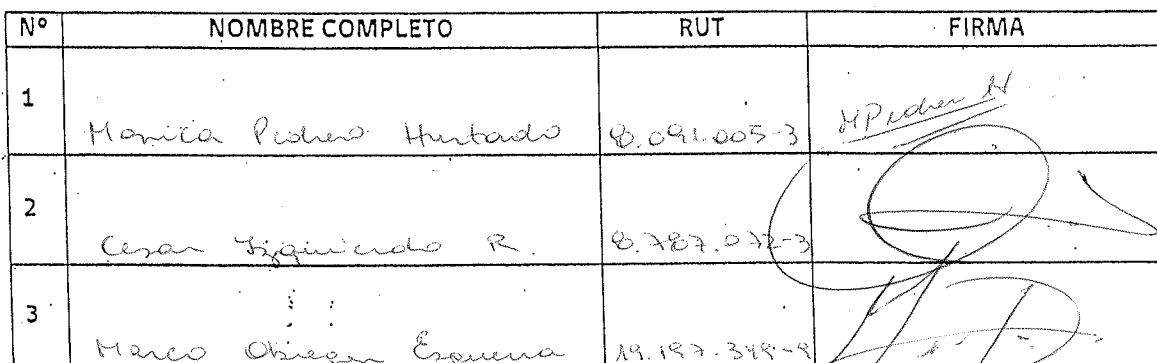 Nº NOMBRE COMPLETO RUT FIRMA
1 Monica Pedrero Hurtado 8.091.005-3 MPedrer H
2 Cesar Izquierdo R. 8.787.072-3
3 Marco Esquerra 19.197.349-9